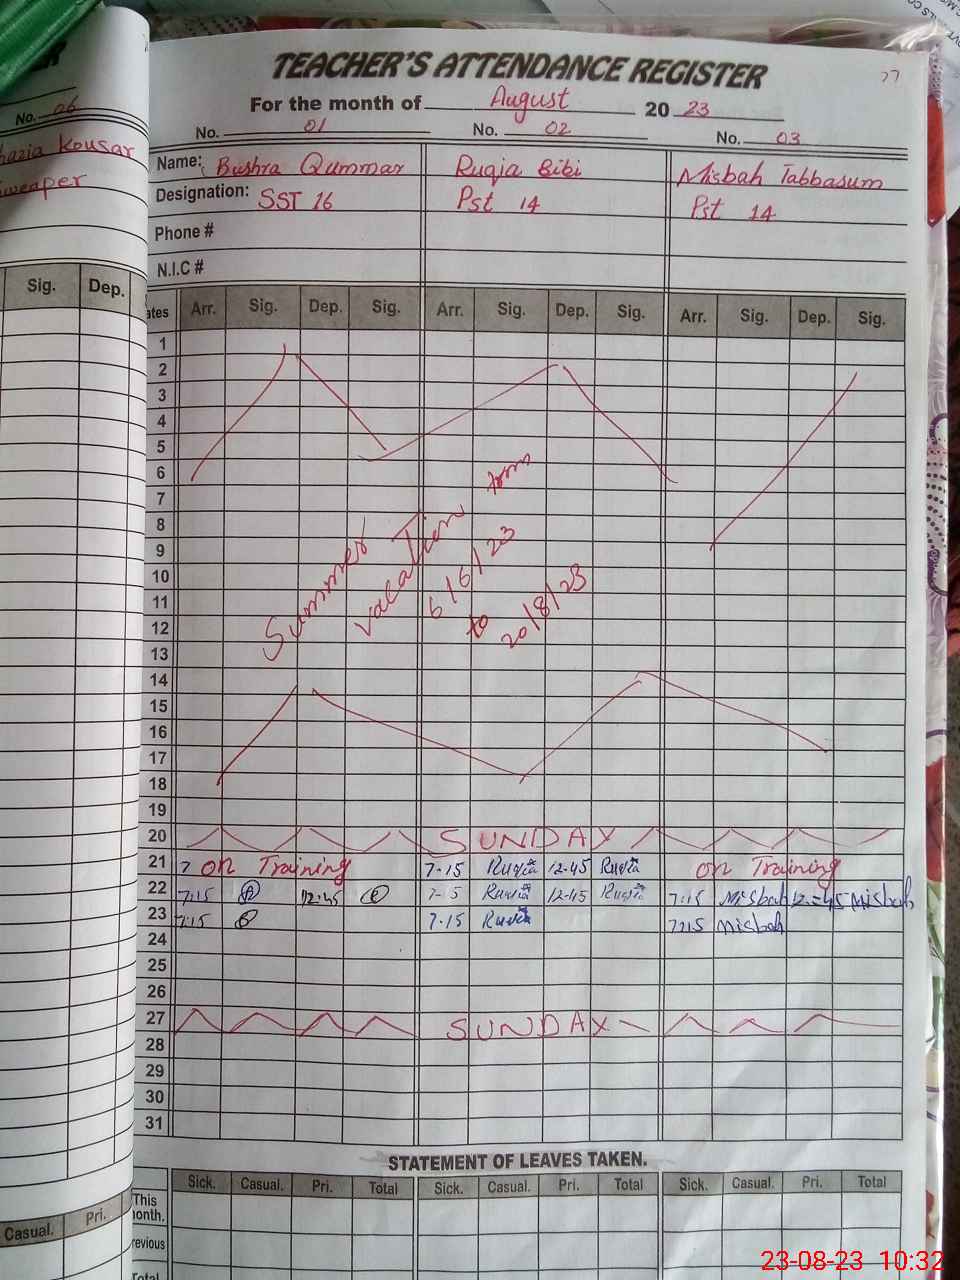 TEACHER'S ATTENDANCE REGISTER
For the month of August 20 23
No. 06
No. 01 No. 02 No. 03
Kousar
Name: Bushra Qummar Ruqia Bibi Misbah Tabbasum
Sweaper
Designation: SST 16 Pst 14 Pst 14
Phone #
N.I.C #
Sig. Dep.
Arr. Sig. Dep. Sig. Arr. Sig. Dep. Sig. Arr. Sig. Dep. Sig.
1
2
3
4
5
6
7
8
9
10
11
12
13
14
15
16
17
18
19
Summer
vacation from
6/6/23
to
20/8/23
20 SUNDAY
21 7 on Training 7-15 Ruqia 12-45 Ruqia on Training
22 7:15 12:45 7-15 Ruqia 12-45 Ruqia 7:15 Misbah 12:45 Misbah
23 7:15 7-15 Ruqia 7:15 Misbah
24
25
26
27 SUNDAY
28
29
30
31
STATEMENT OF LEAVES TAKEN.
Sick. Casual. Pri. Total Sick. Casual. Pri. Total Sick. Casual. Pri. Total
Casual. Pri.
This
23-08-23 10:32